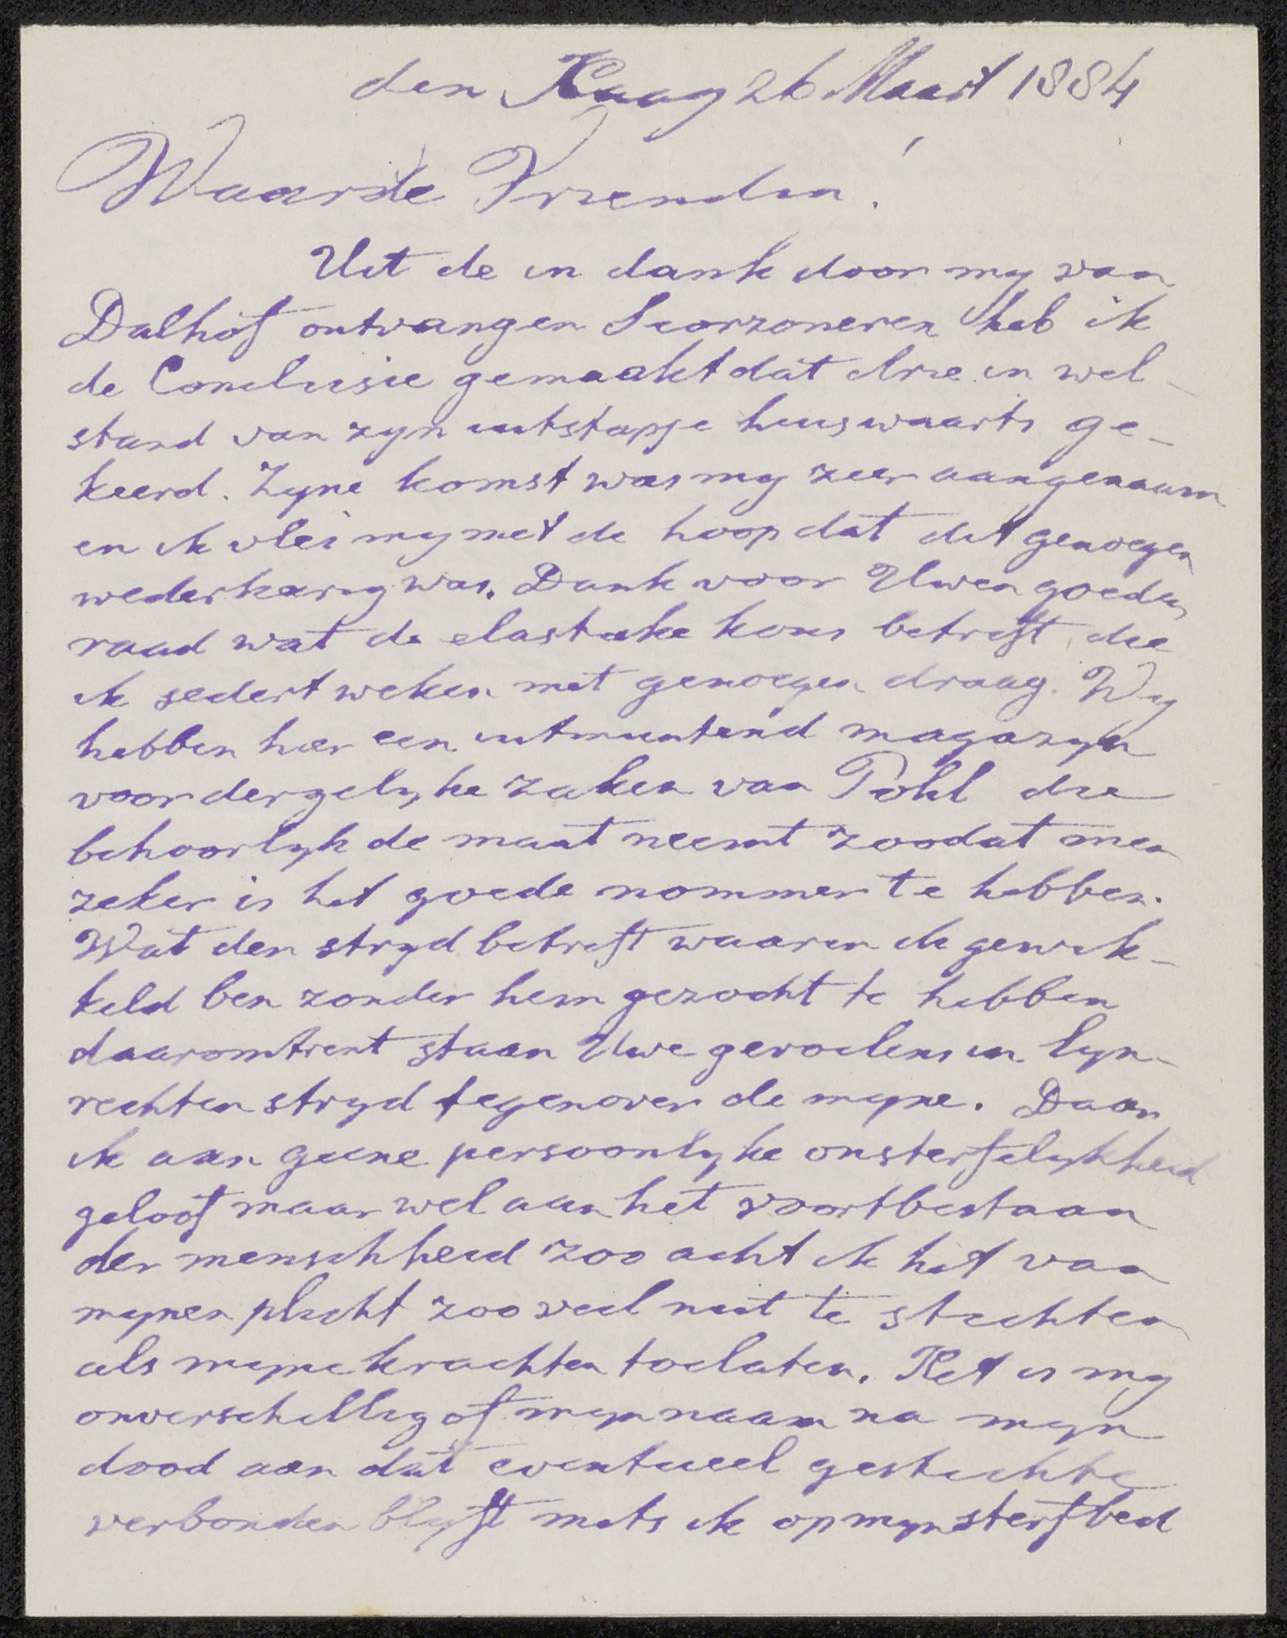 den Haag 26 Maart 1884
Waarde Vrienden!
Uit de in dank door my van
Dalhof ontvangen Scorzoneren heb ik
de Conclusie gemaakt dat drie in wel-
stand van zyn uitstapje huiswaarts ge-
keerd. Zyne komst was my zeer aangenaam
en ik vlei my met de hoop dat dit genoegen
wederkerig was. Dank voor Uwen goeden
raad wat de elastieke kous betreft die
ik sedert weken met genoegen draag. Wy
hebben hier een uitmuntend magazyn
voor dergelyke zaken van Pohl die
behoorlyk de maat neemt zoodat men
zeker is het goede nommer te hebben.
Wat den stryd betreft waarin ik gewik-
keld ben zonder hem gezocht te hebben
daaromtrent staan Uwe gevoelens in lyn-
rechten stryd tegenover de myne. Daar
ik aan geene persoonlyke onsterfelykheid
geloof maar wel aan het voortbestaan
der menschheid zoo acht ik het van
mynen plicht zoo veel nut te stichten
als myne krachten toelaten. Het is my
onverschillig of myn naam na myn
dood aan dat eventueel gestichte
verbonden blyft mits ik op myn sterfbed